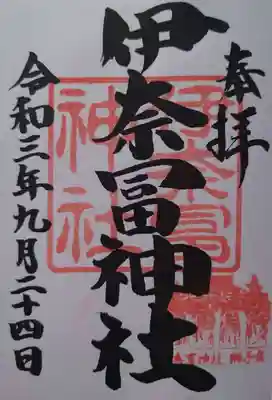 奉拝
伊奈冨神社
令和三年九月二十四日
伊奈冨
神社